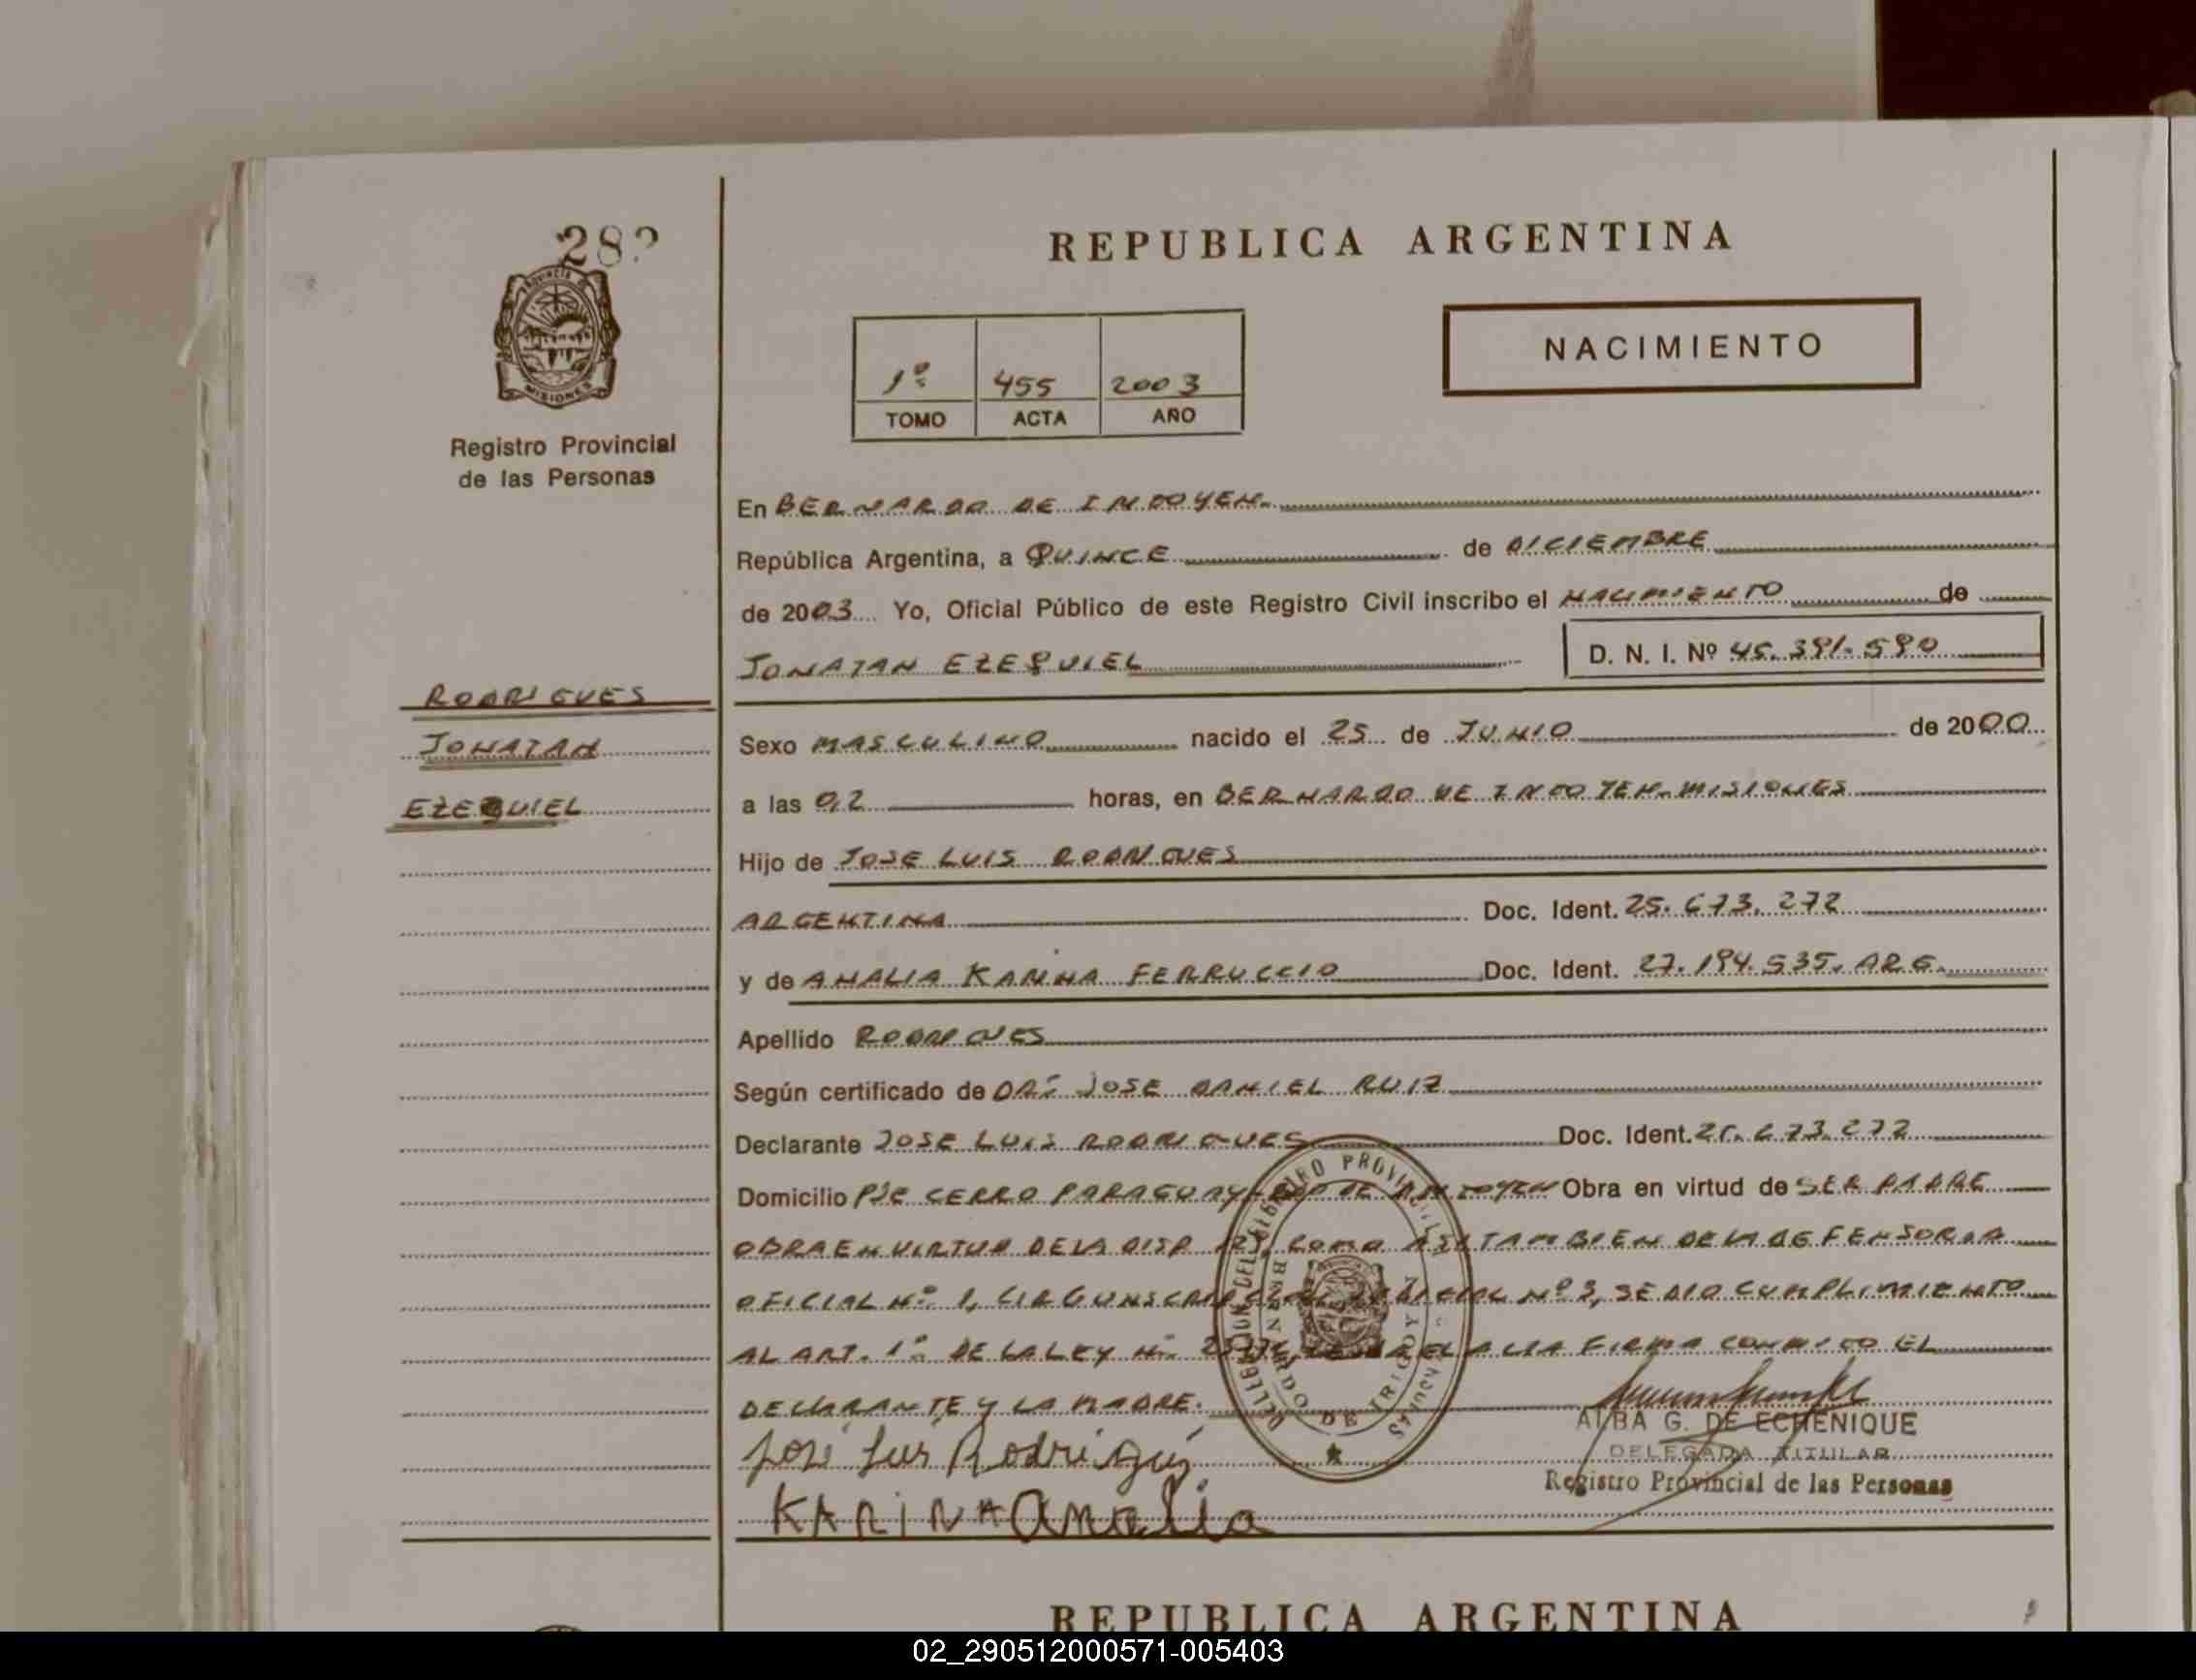 282
REPUBLICA ARGENTINA
PROVINCIA DE
MISIONES
NACIMIENTO
1º 455 2003
TOMO ACTA AÑO
Registro Provincial
de las Personas
En BERNARDO DE IRIGOYEN.
República Argentina, a QUINCE de DICIEMBRE
de 2003 Yo, Oficial Público de este Registro Civil inscribo el NACIMIENTO de
JONATAN EZEQUIEL D. N. I. Nº 45.391.590
RODRIGUES
JONATAN
EZEQUIEL
Sexo MASCULINO nacido el 25 de JUNIO de 2000
a las 02 horas, en BERNARDO DE IRIGOYEN-MISIONES
Hijo de JOSE LUIS RODRIGUES
ARGENTINA Doc. Ident. 25.673.272
y de ANALIA KARINA FERRUCCIO Doc. Ident. 27.194.535. ARG.
Apellido RODRIGUES
Según certificado de DR: JOSE DANIEL RUIZ
Declarante JOSE LUIS RODRIGUES Doc. Ident. 25.673.272
Domicilio PJE CERRO PARAGUAY DE IRIGOYEN Obra en virtud de SER PADRE
OBRA EN VIRTUD DE LA DISP como ASI TAMBIEN DE LA DEFENSORIA
OFICIAL Nº 1, CIRCUNSCRIPCION JUDICIAL Nº 3, SE DIO CUMPLIMIENTO
AL ART. 1º DE LA LEY Nº LEIDA EL ACTA FIRMA CONMIGO EL
DECLARANTE Y LA MADRE.
José Luis Rodrigués
KARINA Analia
DELEGACION DEL REGISTRO PROVINCIAL DE LAS PERSONAS
BERNARDO DE IRIGOYEN
ALBA G. DE ECHENIQUE
DELEGADA TITULAR
Registro Provincial de las Personas
REPUBLICA ARGENTINA
02_290512000571-005403